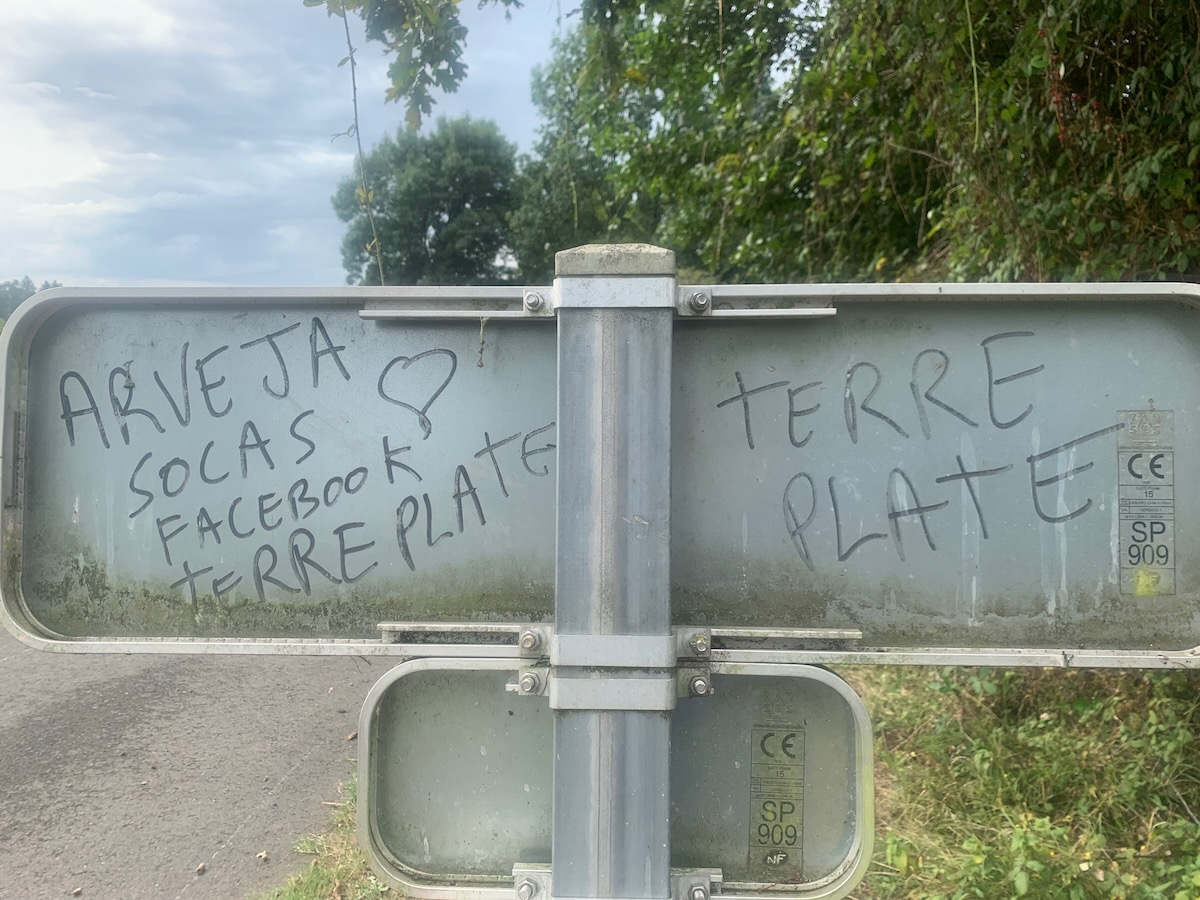 ARVEJA
SOCAS
FACEBOOK
TERRE PLATE
TERRE
PLATE
CE
15
SP
909
CE
15
SP
909
NF